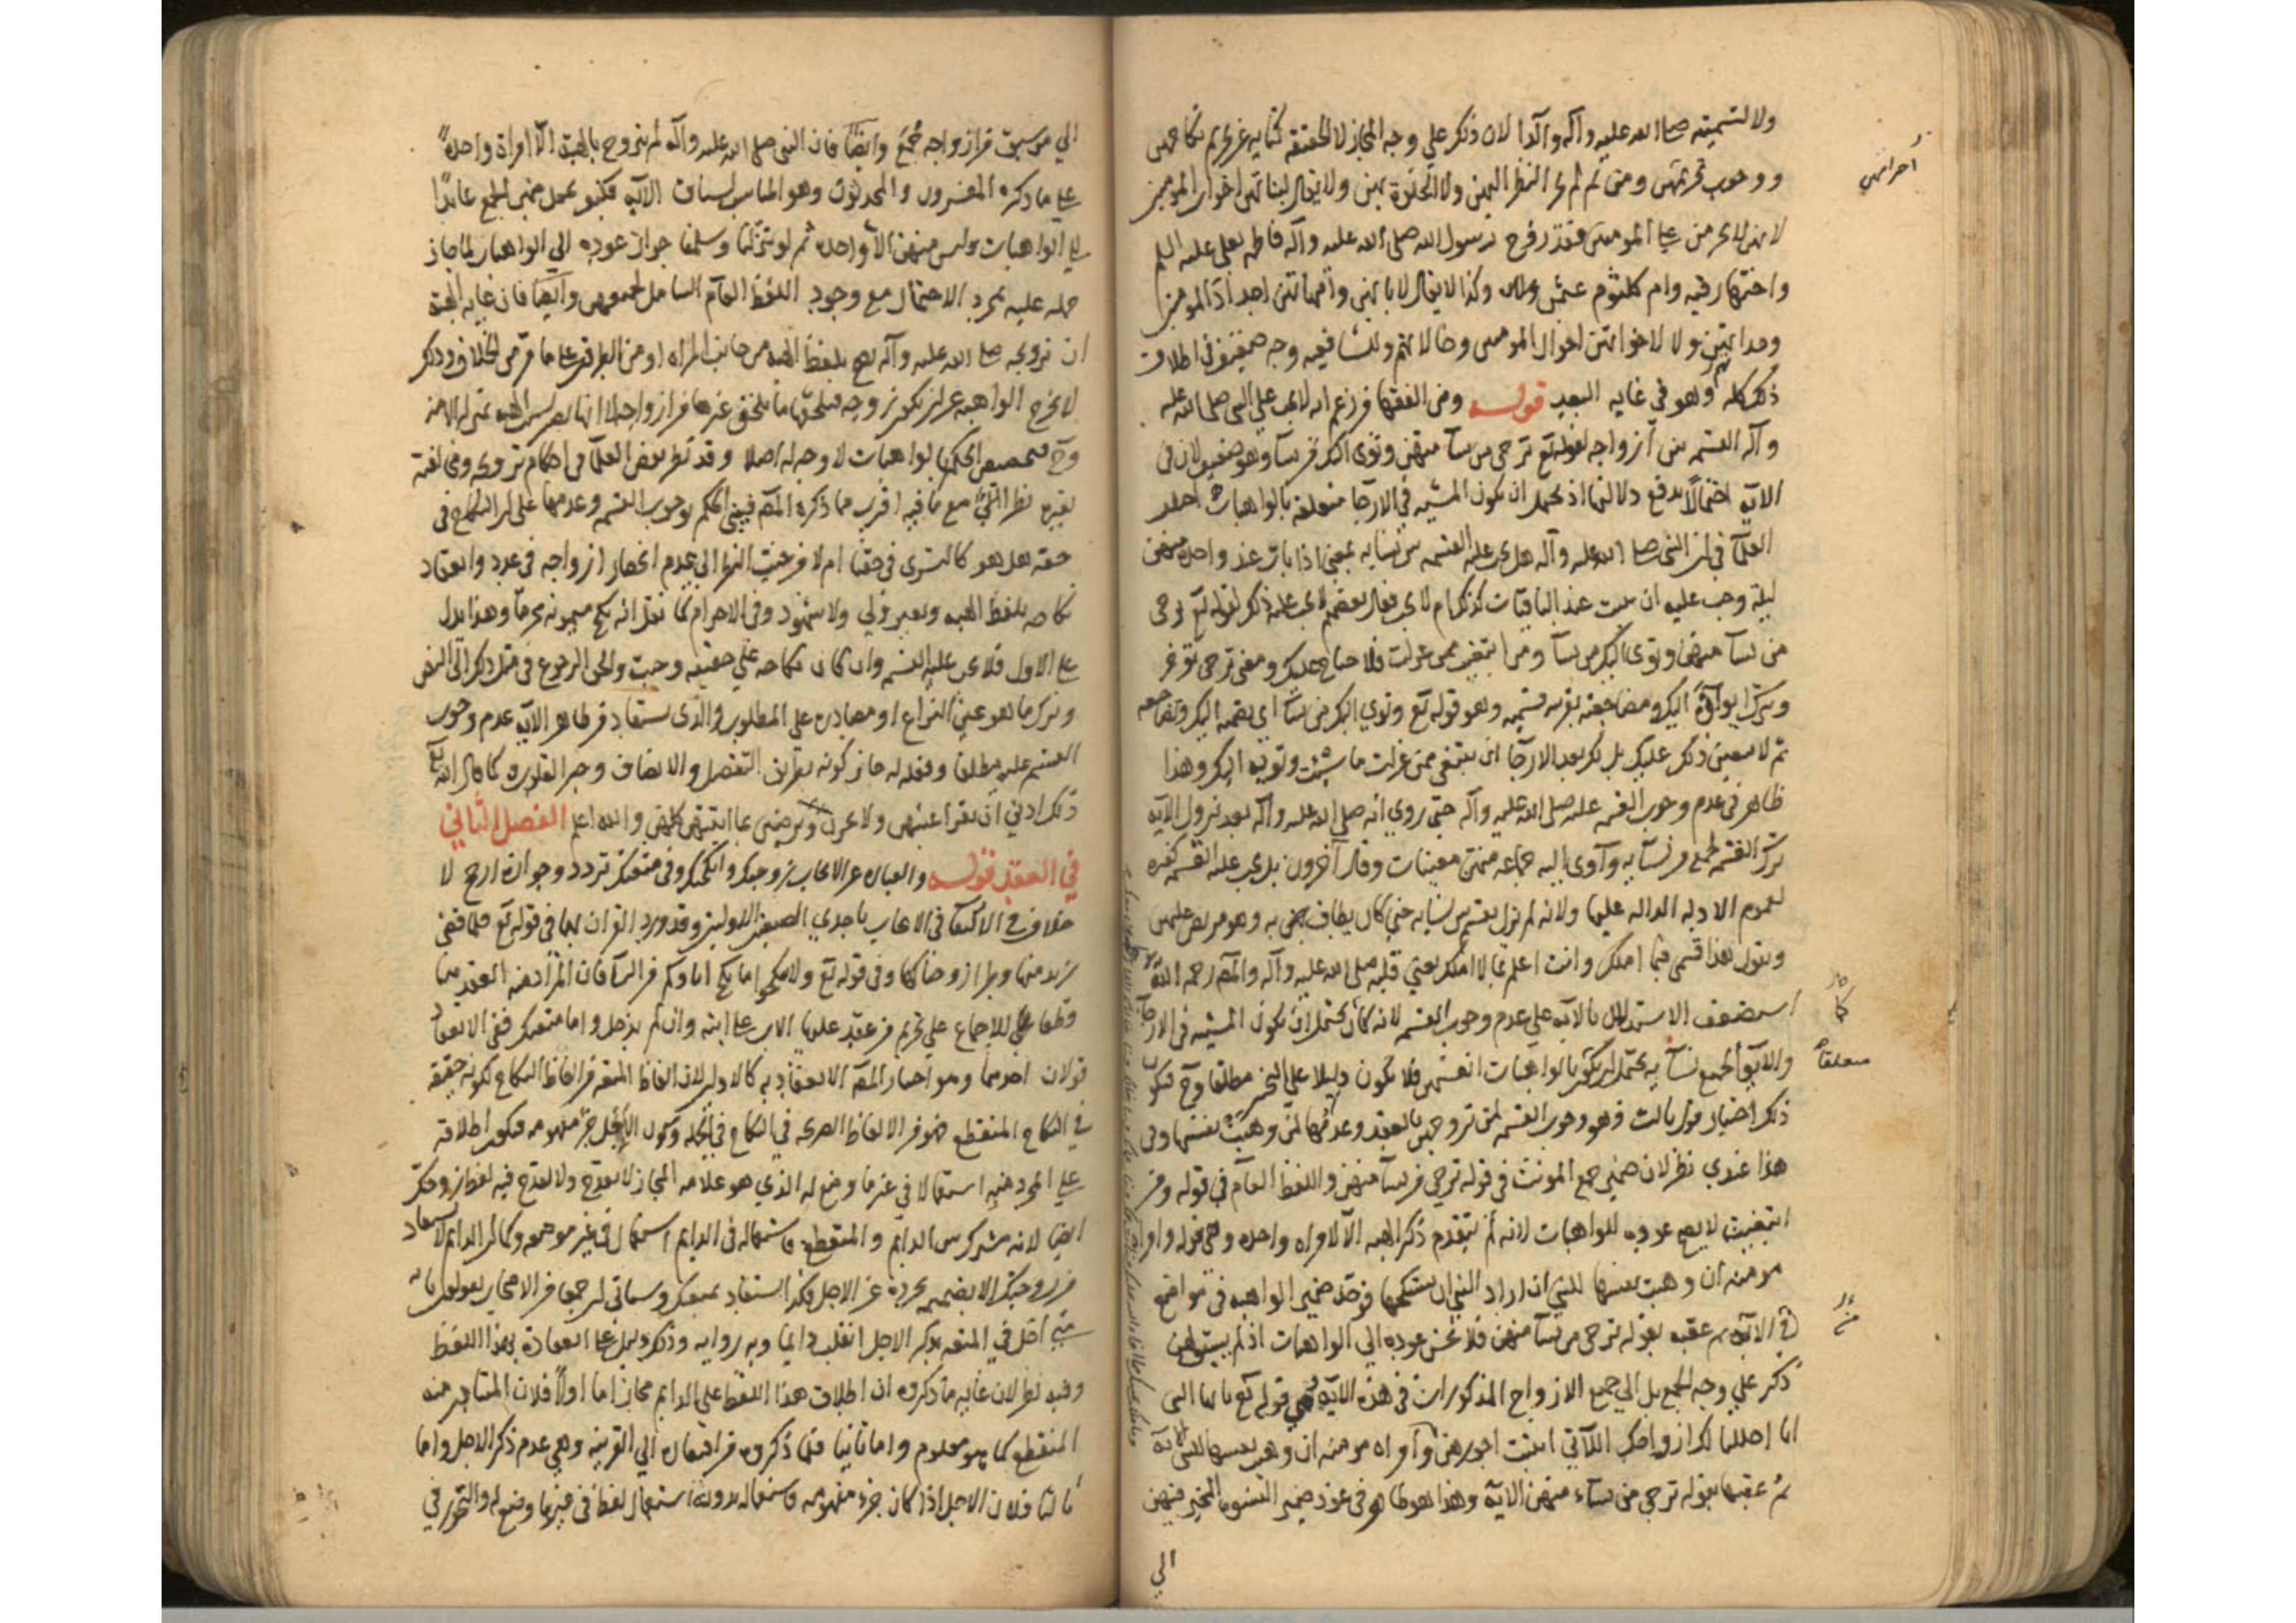 ولا لتسميته صلى الله عليه وآله والدا لان ذلك على وجه المجاز لا الحقيقة كناية عن تحريم نكاحهن
ووجوب تحرمتهن ومن ثم لم يجز النظر اليهن ولا الخلوة بهن ولا يقال لبناتهن اخوات المومنين
لانهن لا يحرمن على المومنين فقد زوج رسول الله صلى الله عليه وآله فاطمة بعلي عليه السلم
واختيها رقية وام كلثوم عثمن وكذا لا يقال لابائهن وامهاتهن اجداد المومنين
وجداتهن ولا لاخواتهن اخوال المومنين وخالاتهم وللشافعية وجه ضعيف في اطلاق
ذلك كله وهو في غاية البعد قوله ومن الفقها من زعم انه لا يجب على النبي صلى الله عليه
وآله القسم بين ازواجه لقوله تع ترجي من تشا منهن وتؤي اليك من تشا وهو ضعيف لان في
الاية احتمالا يدفع دلالتها اذ يحتمل ان يكون المشية في الارجا متعلقة بالواهبات اختلف
العلما في ان النبي صلى الله عليه وآله هل يجب عليه القسم بين نسائه بمعنى اذا بات عند واحدة منهن
ليلة وجب عليه ان يبيت عند الباقيات كذلك ام لا يجب فقال بعضهم لا يجب عليه ذلك لقوله تع ترجي
من تشا منهن وتؤي اليك من تشا ومن ابتغيت ممن عزلت فلا جناح عليك ومعنى ترجي تؤخر
وتترك ايواؤه اليك ومضاجعته بقرينة قسيمه وهو قوله تع وتؤي اليك من تشا اي تضمه اليك وتضاجعه
ثم لا يتعين ذلك عليك بل لك بعد الارجا ان تبتغي ممن عزلت ما شئت وتؤيه اليك وهذا
ظاهر في عدم وجوب القسمة عليه صلى الله عليه وآله حتى روي انه صلى الله عليه وآله بعد نزول الاية
ترك القسمة لجملة من نسائه وآوى اليه جماعة منهن معينات وقال آخرون بل يجب عليه القسمة كغيره
لعموم الادلة الدالة عليها ولانه لم يزل يقسم بين نسائه حتى كان يطاف به وهو مريض عليهن
ويقول هذا قسمي فيما املك وانت اعلم بما لا املك يعني قلبه صلى الله عليه وآله والمصـ رحمه الله
استضعف الاستدلال بالاية على عدم وجوب القسم لانه كما يحتمل ان يكون المشية في الارجا
والايوا لجميع نسائه يحتمل ان يكون بالواهبات انفسهن فلا يكون دليلا على التخيير مطلقا وح فيكون
ذلك اختيار قول ثالث وهو وجوب القسمة لمن تزوجهن بالعقد وعدمها لمن وهبت نفسها وفي
هذا عندي نظر لان ضمير جمع المونث في قوله ترجي من تشا منهن واللفظ العام في قوله ومن
ابتغيت لا يصح عوده للواهبات لانه لم يتقدم ذكر الهبة الا لامراة واحدة وهي قوله وامراة
مومنة ان وهبت نفسها للنبي ان اراد النبي ان يستنكحها فوحد ضمير الواهبة في مواضع
في الاية ثم عقبه بقوله ترجي من تشا منهن فلا يحسن عوده الى الواهبات اذ لم يسبق لهن
ذكر على وجه الجمع بل الى جميع الازواج المذكورات في هذه الاية وهي قوله تع يا ايها النبي
انا احللنا لك ازواجك اللاتي اتيت اجورهن وامراة مومنة ان وهبت نفسها للنبي الاية
ثم عقبها بقوله ترجي من تشاء منهن الاية وهذا هو ظاهر في عود ضمير النسوة المخير فيهن
الى
احرامهن
كما
متعلقا
الى من سبق من ازواجه جمع وايضا فان النبي صلى الله عليه وآله لم يتزوج بالهبة الا امراة واحدة
على ما ذكره المفسرون والمحدثون وهو المناسب لسياق الاية فكيف يجعل ضمير الجمع عائدا
الى الواهبات وليس منهن الا واحدة ثم لو تنزلنا وسلمنا جواز عوده الى الواهبات لما جاز
حمله عليه بمجرد الاحتمال مع وجود اللفظ العام الشامل لجميعهن وايضا فان غاية الهبة
ان تزويجه صلى الله عليه وآله يصح بلفظ الهبة من جانب المراة او من الطرفين على ما مر من الخلاف وذلك
لا يخرج الواهبة عن ان يكون زوجة فيلحقها ما يلحق غيرها من ازواجه لا انها يصير بسبب الهبة بمنزلة الامة
وح فتخصيص الحكم بالواهبات لا وجه له اصلا وقد نظر بعض العلما في احكام تزويجه ومخالفته
لغيره نظرا اخر مع ما فيه اقرب مما ذكره المصـ فبنى الحكم بوجوب القسمة وعدمها على ان النكاح في
حقه هل هو كالتسري في حقنا ام لا من حيث النظر الى عدم انحصار ازواجه في عدد وانعقاد
نكاحه بلفظ الهبة وبغير ولي ولا شهود وفي الاحرام كما نقل انه نكح ميمونة محرما وهذا يدل
على الاول فلا يجب عليه القسم وان كان نكاحه على حقيقته وجبت والحق الرجوع في مثل ذلك الى النص
وترك ما هو عين النزاع او مصادرة على المطلوب والذي يستفاد من ظاهر الاية عدم وجوب
القسم عليه مطلقا وفعله له جاز كونه بطريق التفضل والانصاف وجبر القلوب كما قال الله تع
ذلك ادنى ان تقر اعينهن ولا يحزن ويرضين بما اتيتهن كلهن والله اعلم الفصل الثاني
في العقد قوله والعبارة عن الايجاب زوجتك وانكحتك وفي متعتك تردد وجوازه ارجح لا
خلاف في الاكتفا في الايجاب باحدى الصيغتين الاوليتين وقد ورد القران بهما في قوله تع فلما قضى
زيد منها وطرا زوجناكها وفي قوله تع ولا تنكحوا ما نكح اباؤكم من النسا فان المراد منه العقد
وقطعا للاجماع على تحريم من عقد عليها الاب على ابنه وان لم يدخل واما متعتك ففي الانعقاد
قولان احدهما وهو اختيار المصـ الانعقاد به كالاولين لان الفاظ المتعة من الفاظ النكاح لكونه حقيقة
في النكاح المنقطع فهو من الالفاظ الصريحة في النكاح في الجملة وكون الاجل جزء مفهومه فيكون اطلاقه
على المجرد منه استعمالا في غير ما وضع له الذي هو علامة المجاز لا يقدح ولا يقدح فيه لفظ زوجتك
ايضا لانه مشترك بين الدايم والمنقطع فاستعماله في الدايم استعمال في غير موضعه وكما ان الدايم لا يستفاد
من زوجتك الا بضميمة تجرده عن الاجل فكذا استفاد بمتعتك وسياتي ان جمعا من الاصحاب يقولون بانه
متى اخل في المتعة بذكر الاجل انقلب دايما وبه رواية وذلك يدل على انعقاده بهذا اللفظ
وفيه نظر لان غاية ما ذكروه ان اطلاق هذا اللفظ على الدايم مجاز اما اولا فلان المتبادر منه
المنقطع كما هو معلوم واما ثانيا فلما ذكروه من افتقاره الى القرينة وهي عدم ذكر الاجل واما
ثالثا فلان الاجل اذا كان جزء مفهومه فاستعماله بدونه استعمال لفظ في غير ما وضع له والتجوز في